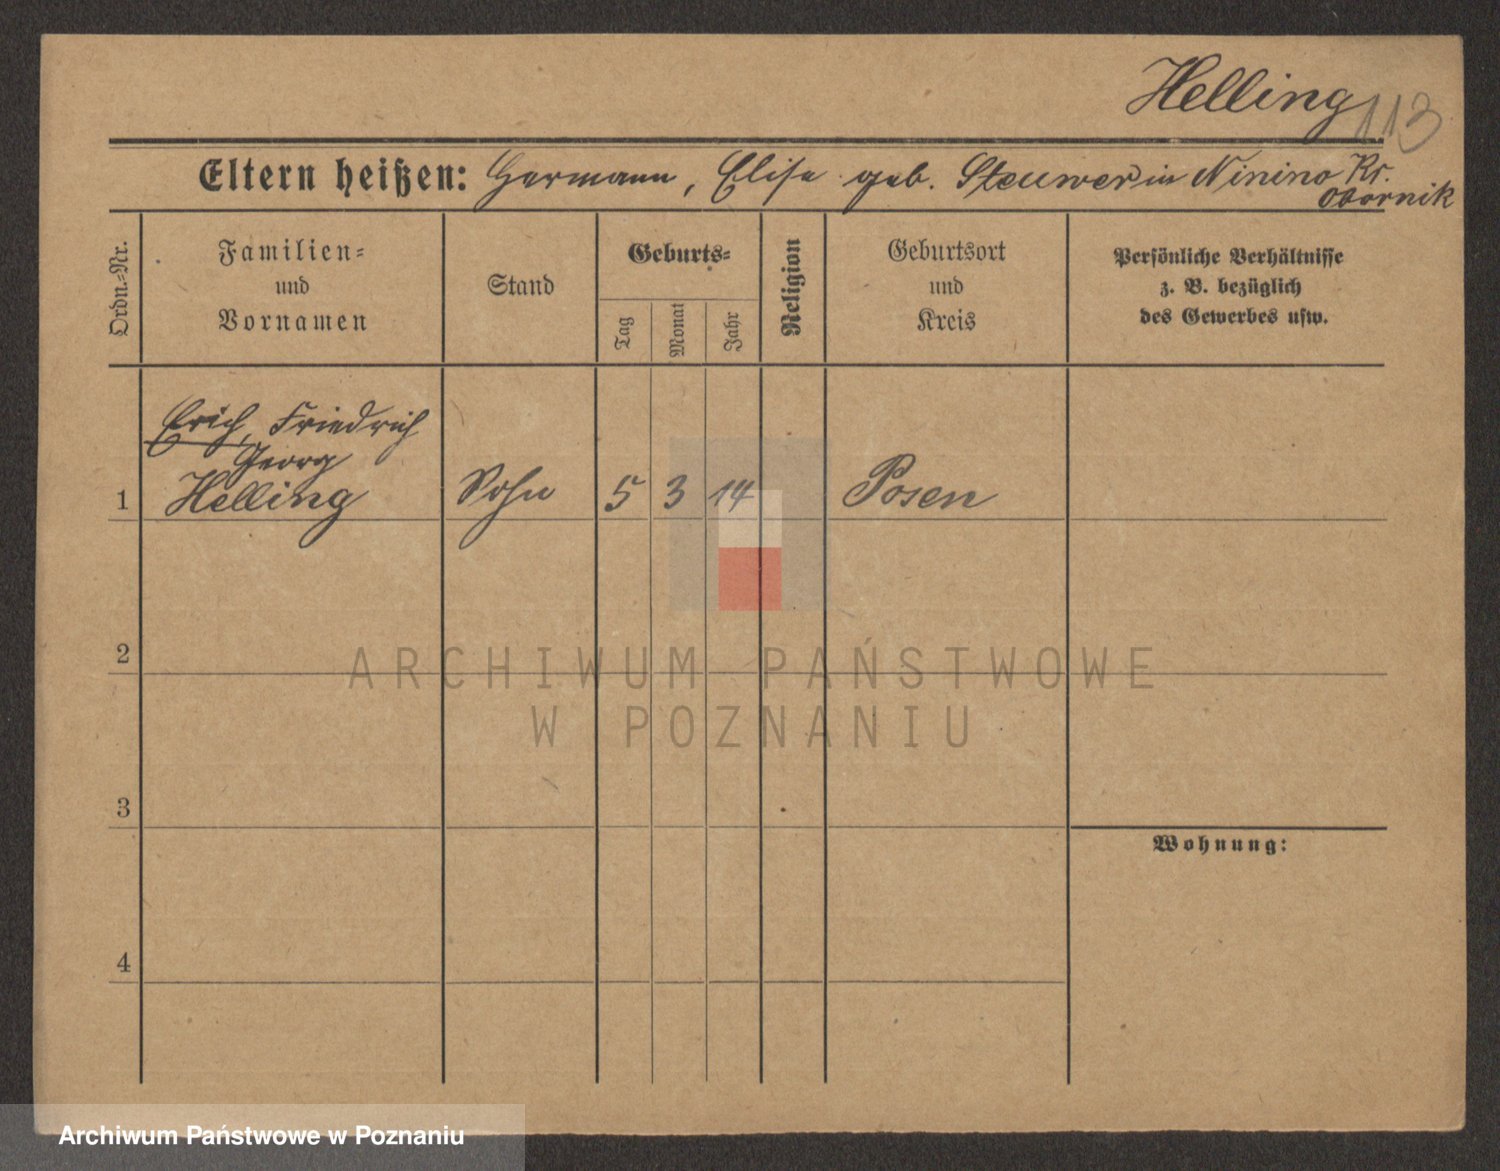 Helling
113
Eltern heißen: Hermann, Elise geb. Steuwer in Ninino Kr.
Obornik
Ordn.-Nr.
Familien-
und
Vornamen
Stand
Geburts-
Tag
Monat
Jahr
Religion
Geburtsort
und
Kreis
Persönliche Verhältnisse
z. B. bezüglich
des Gewerbes usw.
Erich, Friedrich
Georg
1 Helling Sohn 5 3 14 Posen
2
ARCHIWUM PAŃSTWOWE
W POZNANIU
3
Wohnung:
4
Archiwum Państwowe w Poznaniu